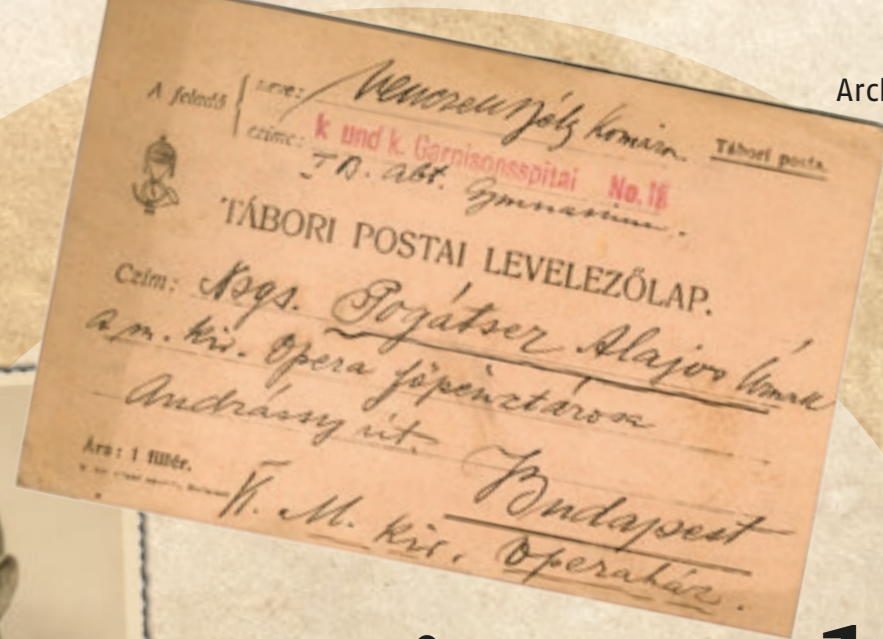 Arch
A feladó
neve:
Komárom.
Tábori posta.
czíme:
k und k. Garnisonsspital No. 18
Abt. Gymnasium.
TÁBORI POSTAI LEVELEZŐLAP.
Czím: Nsgs. Pogátser Alajos Úrnak
a m. kir. Opera főpénztárosa
Andrássy út.
Budapest
Ára: 1 fillér.
K. M. Kir. Operaház.